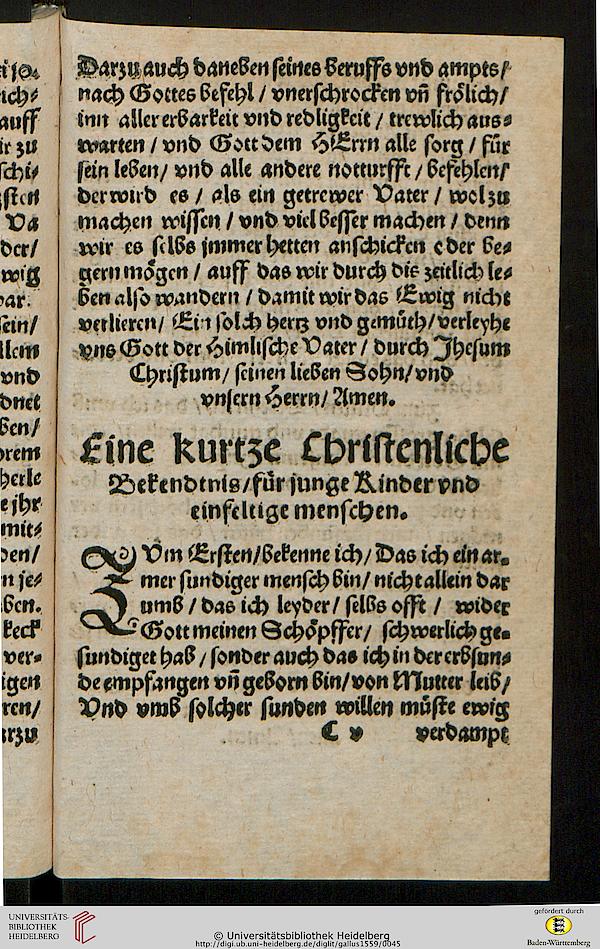 Darzu auch daneben seines beruffs vnd ampts /
nach Gottes befehl / vnerschrocken vñ frölich /
inn aller erbarkeit vnd redligkeit / trewlich aus⸗
warten / vnd Gott dem HErrn alle sorg / für
sein leben / vnd alle andere notturfft / befehlen /
der wird es / als ein getrewer Vater / wol zu
machen wissen / vnd viel besser machen / denn
wir es selbs jmmer hetten anschicken oder be⸗
gern mögen / auff das wir durch dis zeitlich le⸗
ben also wandern / damit wir das Ewig nicht
verlieren / Ein solch hertz vnd gemüth / verleyhe
vns Gott der Himlische Vater / durch Jhesum
Christum / seinen lieben Sohn / vnd
vnsern Herrn / Amen.
Eine kurtze Christenliche
Bekendtnis / für junge Kinder vnd
einfeltige menschen.
ZVm Ersten / bekenne ich / Das ich ein ar⸗
mer sundiger mensch bin / nicht allein dar
umb / das ich leyder / selbs offt / wider
Gott meinen Schöpffer / schwerlich ge⸗
sundiget hab / sonder auch das ich in der erbsun⸗
de empfangen vñ geborn bin / von Mutter leib /
Vnd vmb solcher sunden willen müste ewig
C v verdampt
auff
ir zu
schi⸗
Va
der /
wig
sein /
vnd
dnet
ben /
e jhr
mit⸗
den /
n je⸗
ben.
keck
ver⸗
igen
ren /
arzu
UNIVERSITÄTS-
BIBLIOTHEK
HEIDELBERG
© Universitätsbibliothek Heidelberg
http://digi.ub.uni-heidelberg.de/diglit/gallus1559/0045
gefördert durch
Baden-Württemberg